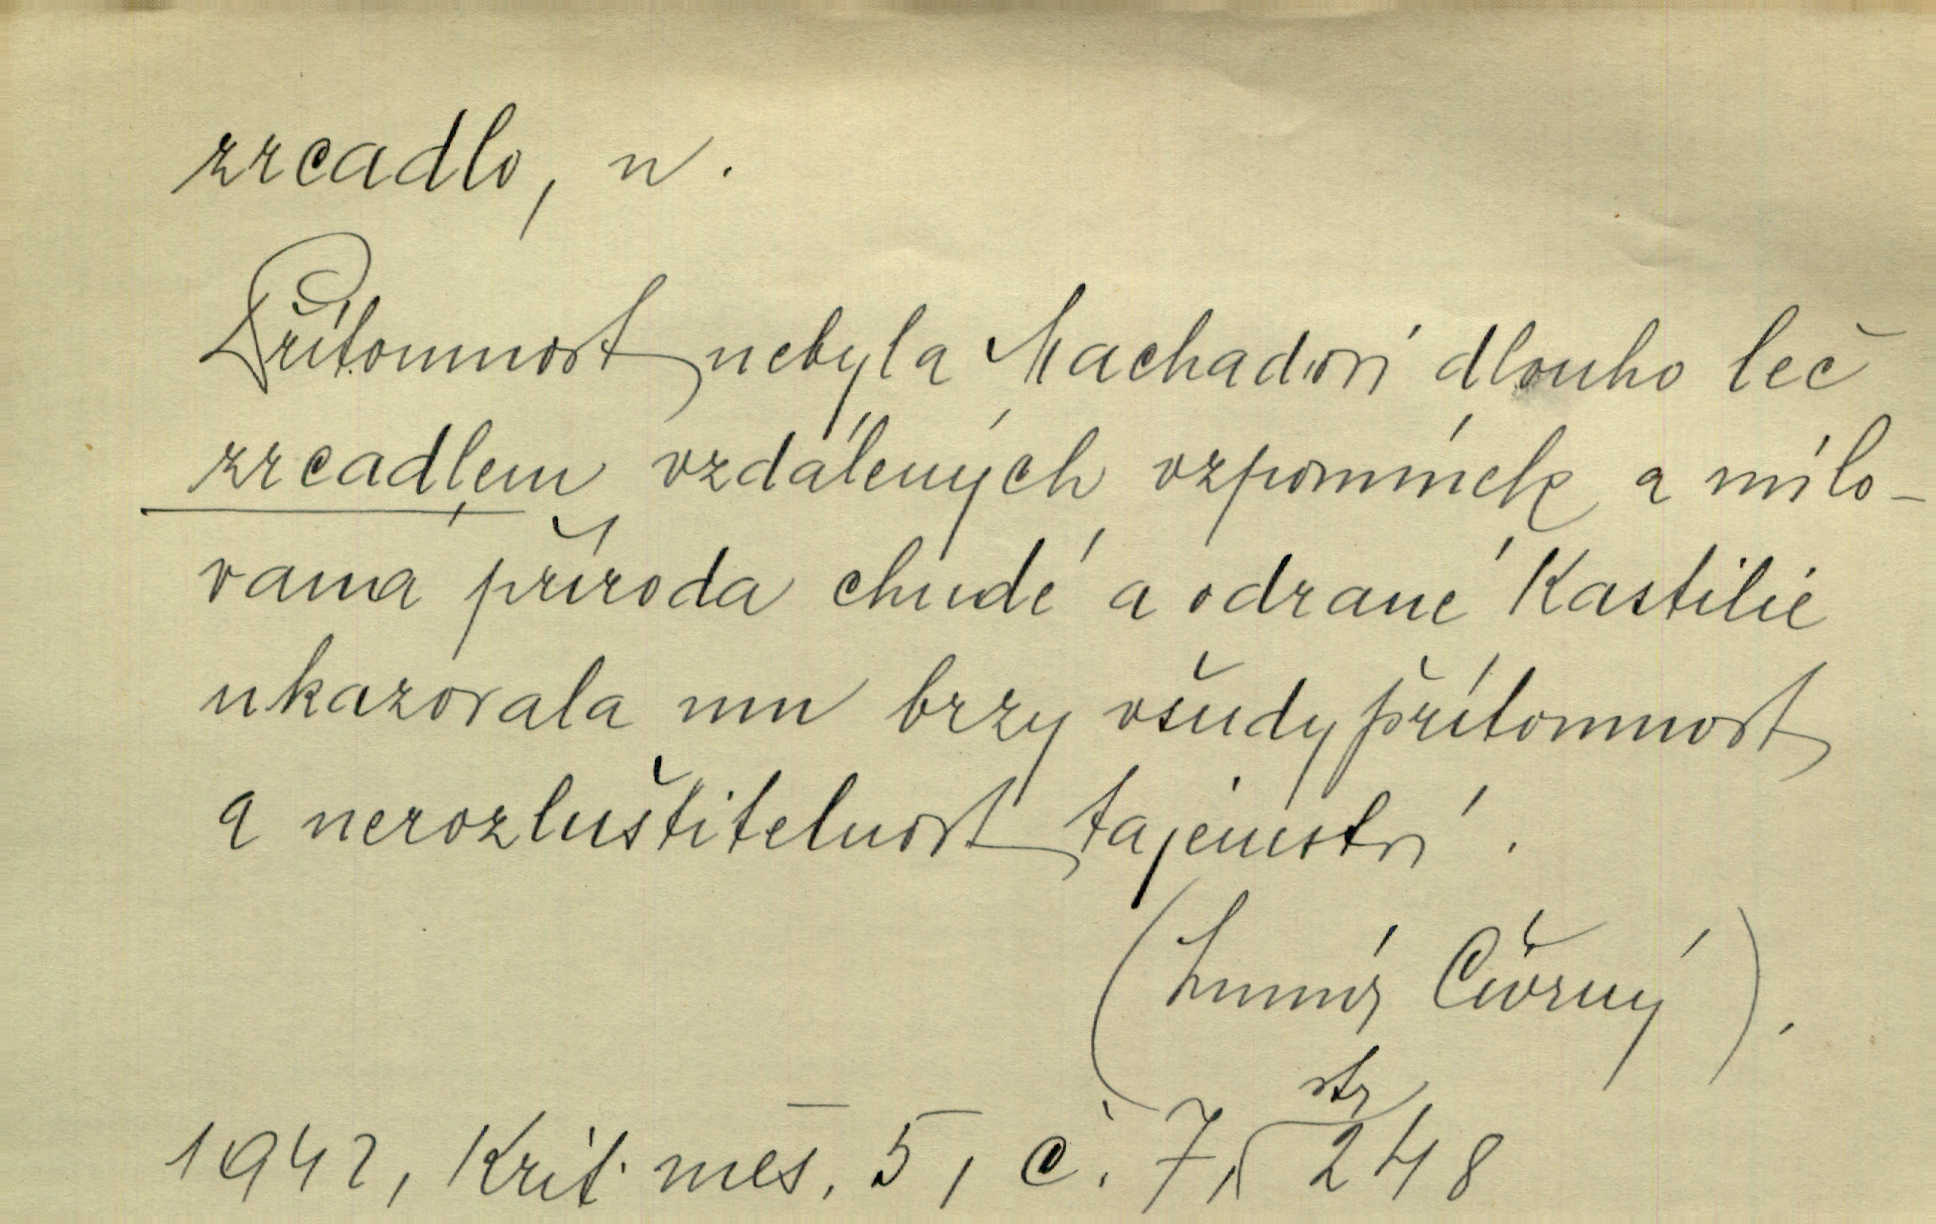 zrcadlo, n.
Přítomnost nebyla Machadovi dlouho leč
zrcadlem vzdálených vzpomínek a milo-
vaná příroda chudé a odrané Kastilie
ukazovala mu brzy všudypřítomnost
a nerozluštitelnost tajemství.
(Lumír Čivrný).
str
1942, Krit. měs. 5, č. 7, 248